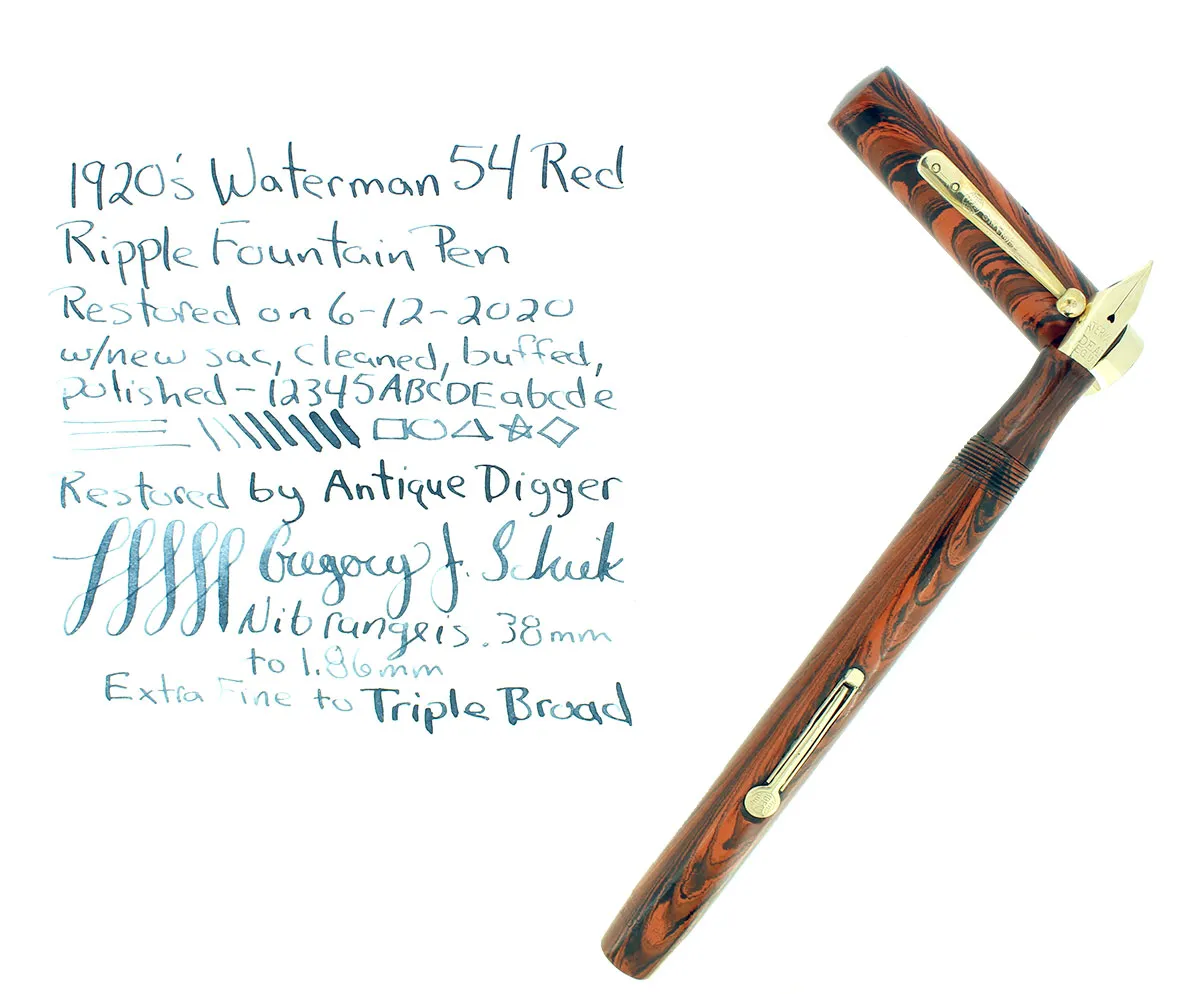 1920's Waterman 54 Red
Ripple Fountain Pen
Restored on 6-12-2020
w/new sac, cleaned, buffed,
polished - 12345ABCDEabcde
Restored by Antique Digger
Gregory J.
Nib range is .38mm
to 1.86mm
Extra Fine to Triple Broad